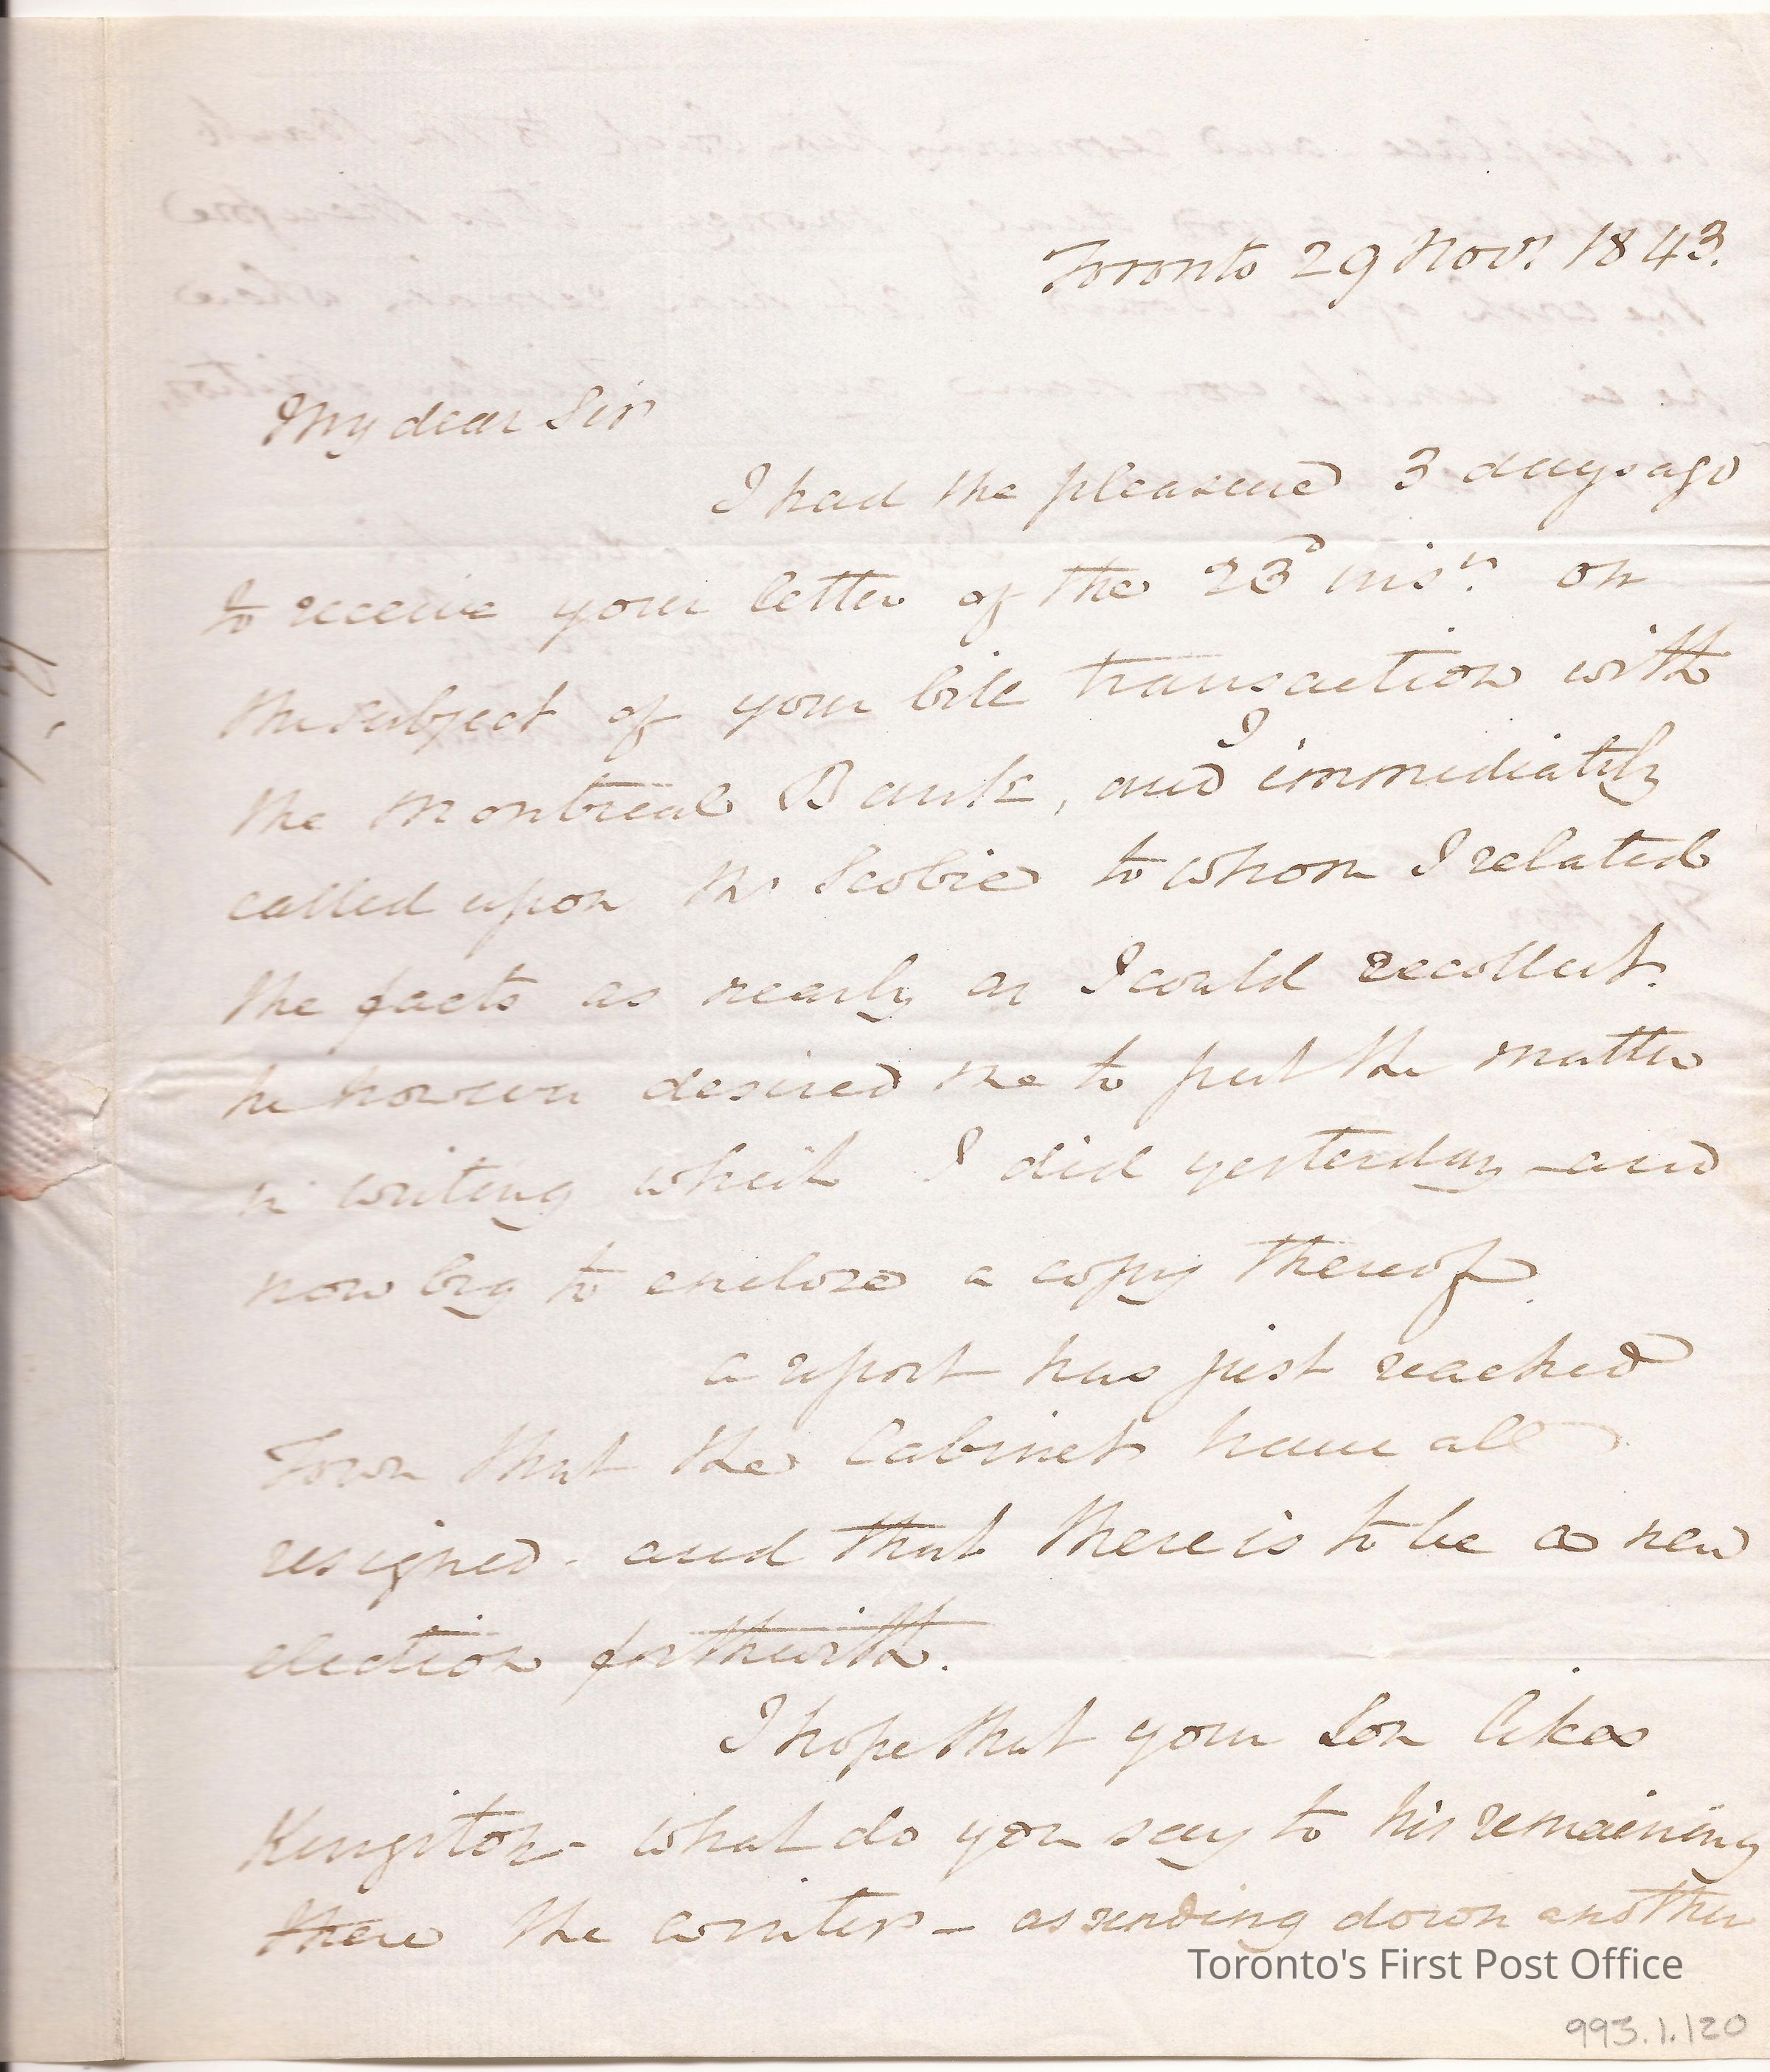 Toronto 29 Novr. 1843.
My dear Sir
I had the pleasure 3 days ago
to receive your letter of the 23d inst. on
the subject of your bill transaction with
the Montreal Bank, and I immediately
called upon Mr Scobie to whom I related
the facts as nearly as I could recollect.
he however desired me to put the matter
in writing which I did yesterday and
now beg to enclose a copy thereof.
a report has just reached
Town that the Cabinet have all
resigned - and that there is to be a new
election forthwith.
I hope that your Son likes
Kingston - what do you say to his remaining
there the winter - as sending down another
Toronto's First Post Office
993.1.120